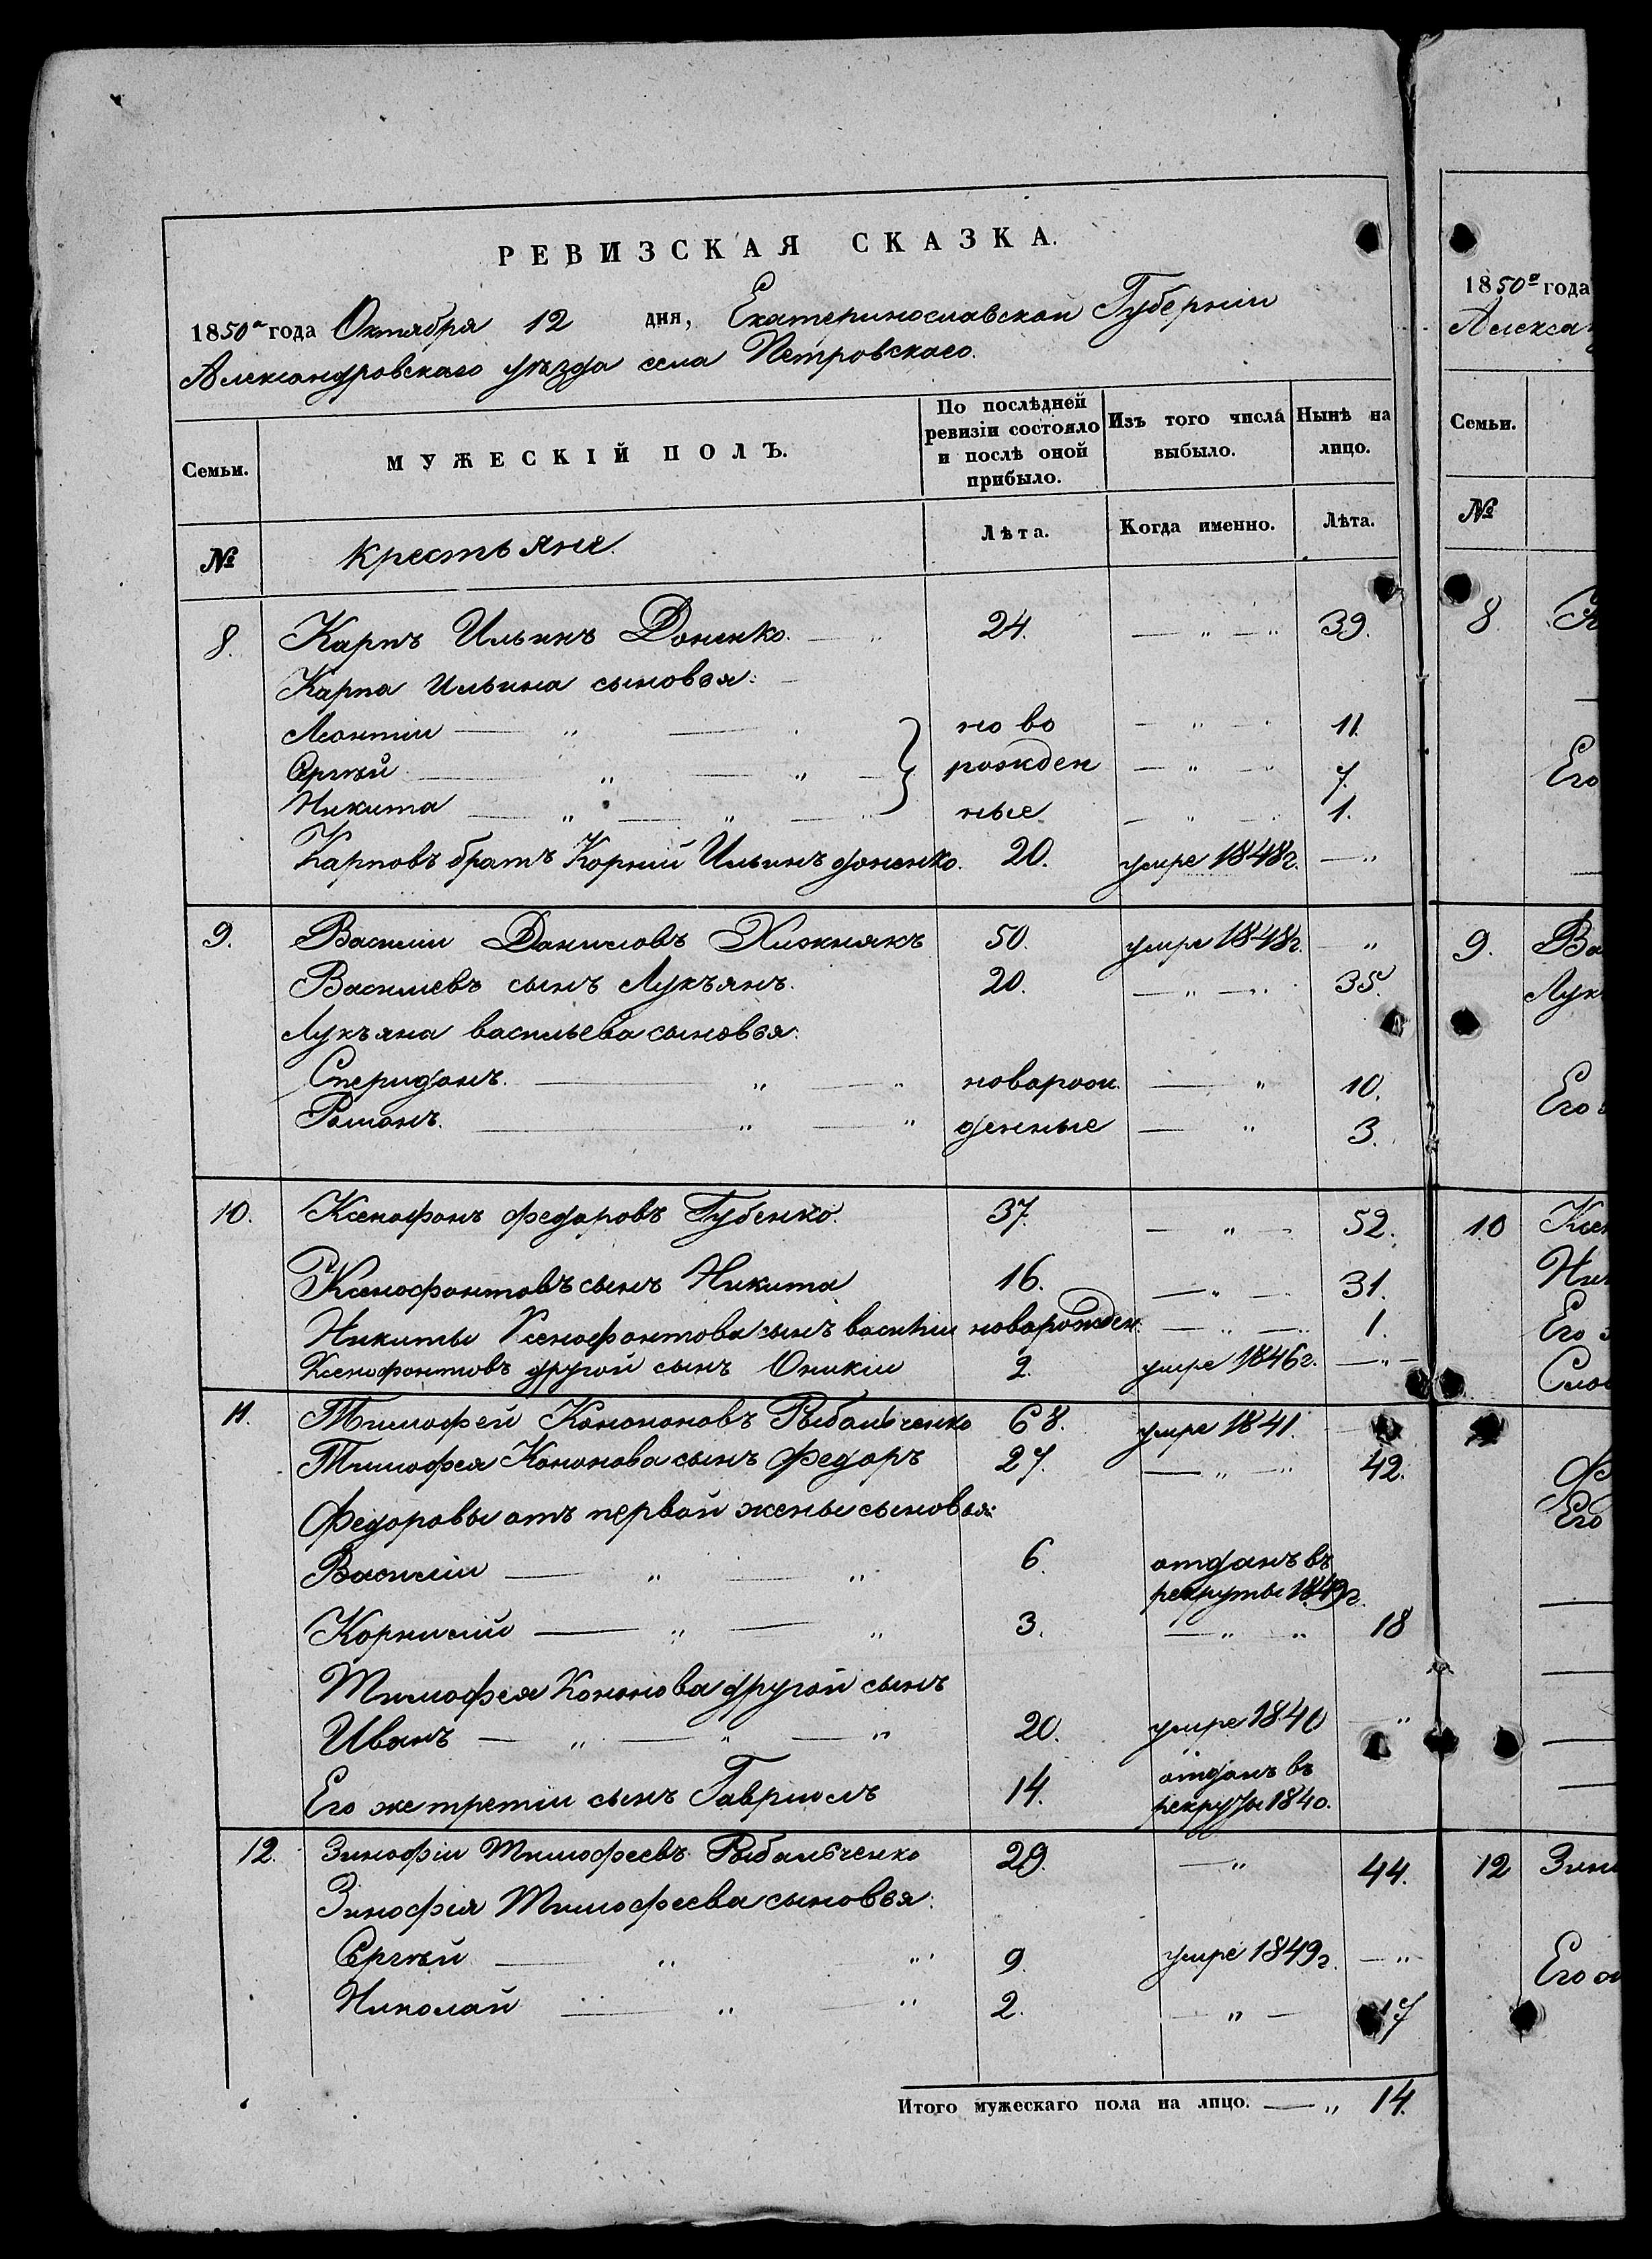 РЕВИЗСКАЯ СКАЗКА.
1850го года Октября 12 дня, Екатеринославской Губерніи
Александровскаго уѣзда села Петровскаго.
Семьи.
МУЖЕСКІЙ ПОЛЪ.
По послѣдней ревизіи состояло и послѣ оной прибыло.
Изъ того числа выбыло.
Нынѣ на лицо.
№
крестьяне.
Лѣта.
Когда именно.
Лѣта.
8. Карпъ Ильинъ Доненко. — „ 24. — „ — „ 39.
Карпа Ильина сыновья: —
Леонтіи — „ — но во — „ — 11.
Сергѣй — „ — „ — рожден — „ — 7.
Никита — „ — „ — ные — „ — 1.
Карповъ братъ Корній Ильинъ доненко. 20. умре 1848г. — „
9. Василіи Даниловъ Хижнякъ 50. умре 1848г. — „
Васильевъ сынъ Лукъянъ. 20. — „ — „ 35.
Лукъяна васильева сыновья:
Спиридонъ. — „ — „ наворож — „ 10.
Романъ. — „ — „ денные — „ 3.
10. Ксенофонъ федоровъ Губенко. 37. — „ — 52.
Ксенофонтовъ сынъ Никита 16. — „ — 31.
Никиты Ксенофонтова сынъ василіи новорожден. — „ — „ 1.
Ксенофонтовъ другой сынъ Оникіи 2. умре 1846г. — „ —
11. Тимофей Конононовъ Рыбальченко 68. умре 1841. —
Тимофея Кононова сынъ Федоръ 27. — „ — „ 42.
Федоровы отъ первой жены сыновья:
Василіи — „ — „ 6. отданъ въ
рекруты 1849г.
Корнилій — „ — „ 3. — „ „ 18
Тимофея Кононова другой сынъ
Иванъ — „ — „ — „ 20. умре 1840 — „
Его же третіи сынъ Гавриилъ 14. отданъ въ
рекруты 1840.
12. Зинофіи Тимофеевъ Рыбальченко 29. — „ 44.
Зинофія Тимофеева сыновья:
Сергѣй — „ „ 9. умре 1849г. — „
Николай — „ — „ 2. — „ — 17
Итого мужескаго пола на лицо. — „ 14.
1850го года
Алекса
Семьи.
№
8
Его
9. Ва
Лук
Его
10 Ксе
Ник
Его
Ф
Его
12 Зин
Его